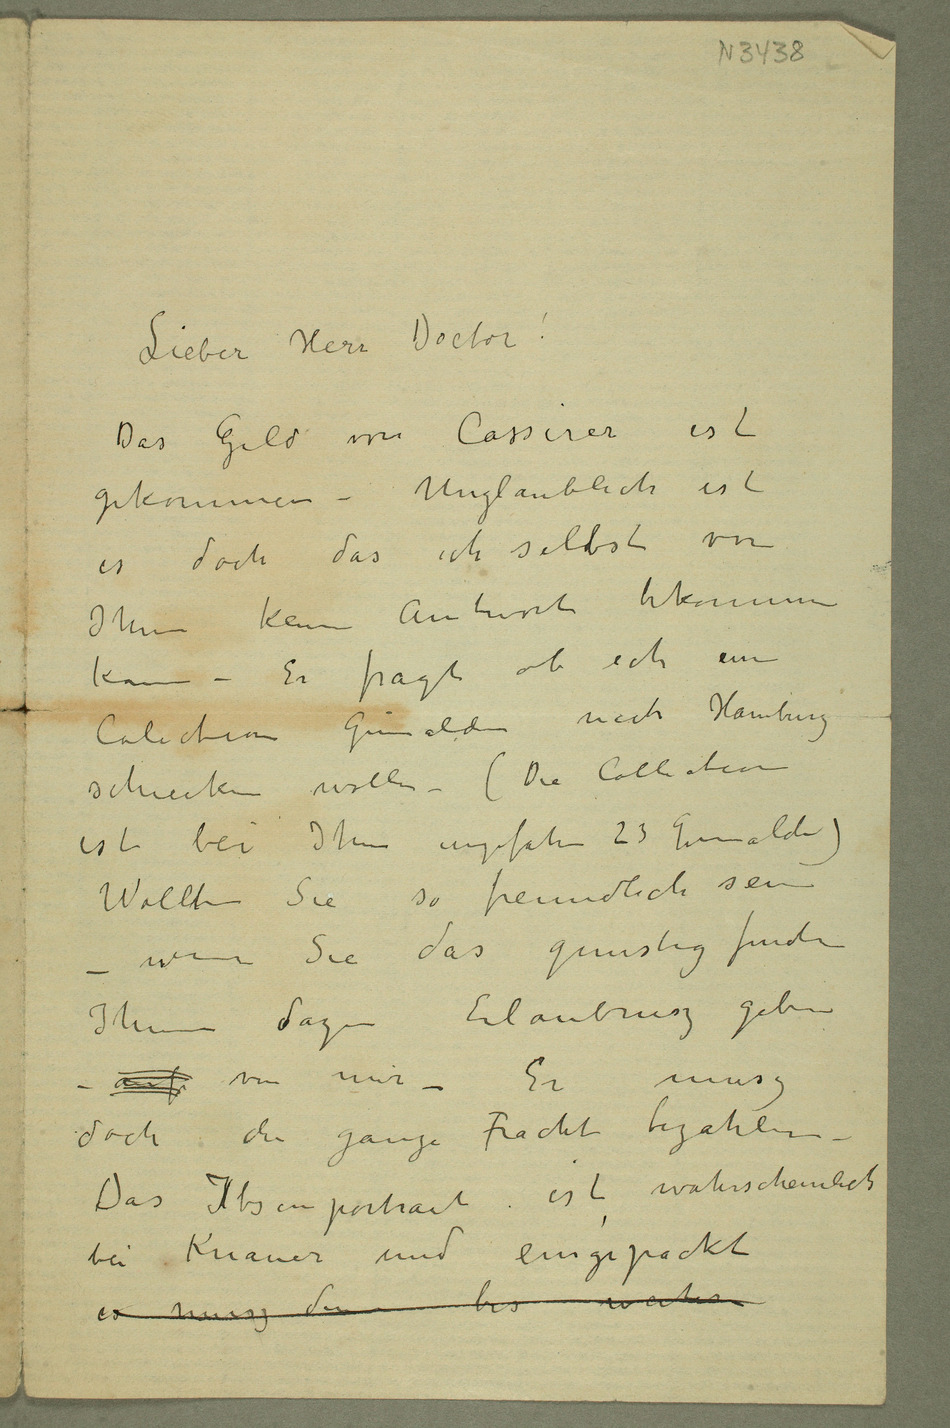 N3438
Lieber Herr Doctor!
Das Geld von Cassirer ist
gekommen – Unglaublich ist
es doch das ich selbst von
Ihm kein Antwort bekommen
kann – Er fragt ob ich ein
Colection Gemälden nach Hamburg
schicken wolle – (Die Collection
ist bei Ihm ungefähr 23 Gemälde)
Wollten Sie so freundlich sein
– wenn Sie das günstig finden
Ihnen dazu Erlaubnisz geben
– auf von mir – Er musz
doch die ganze Fracht bezahlen –
Das Ibsenportrait ist wahrscheinlich
bei Knauer und eingepackt
es musz da bis weiter